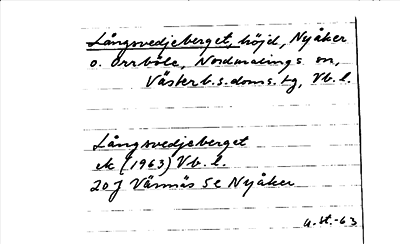 Långsvedjeberget, höjd, Nyåker
o. Orrböle, Nordmalings sn,
Västerb.s.doms.tg, Vb. l.
Långsvedjeberget
ek (1963) Vb. l.
20J Vännäs 5e Nyåker
u. st. -63